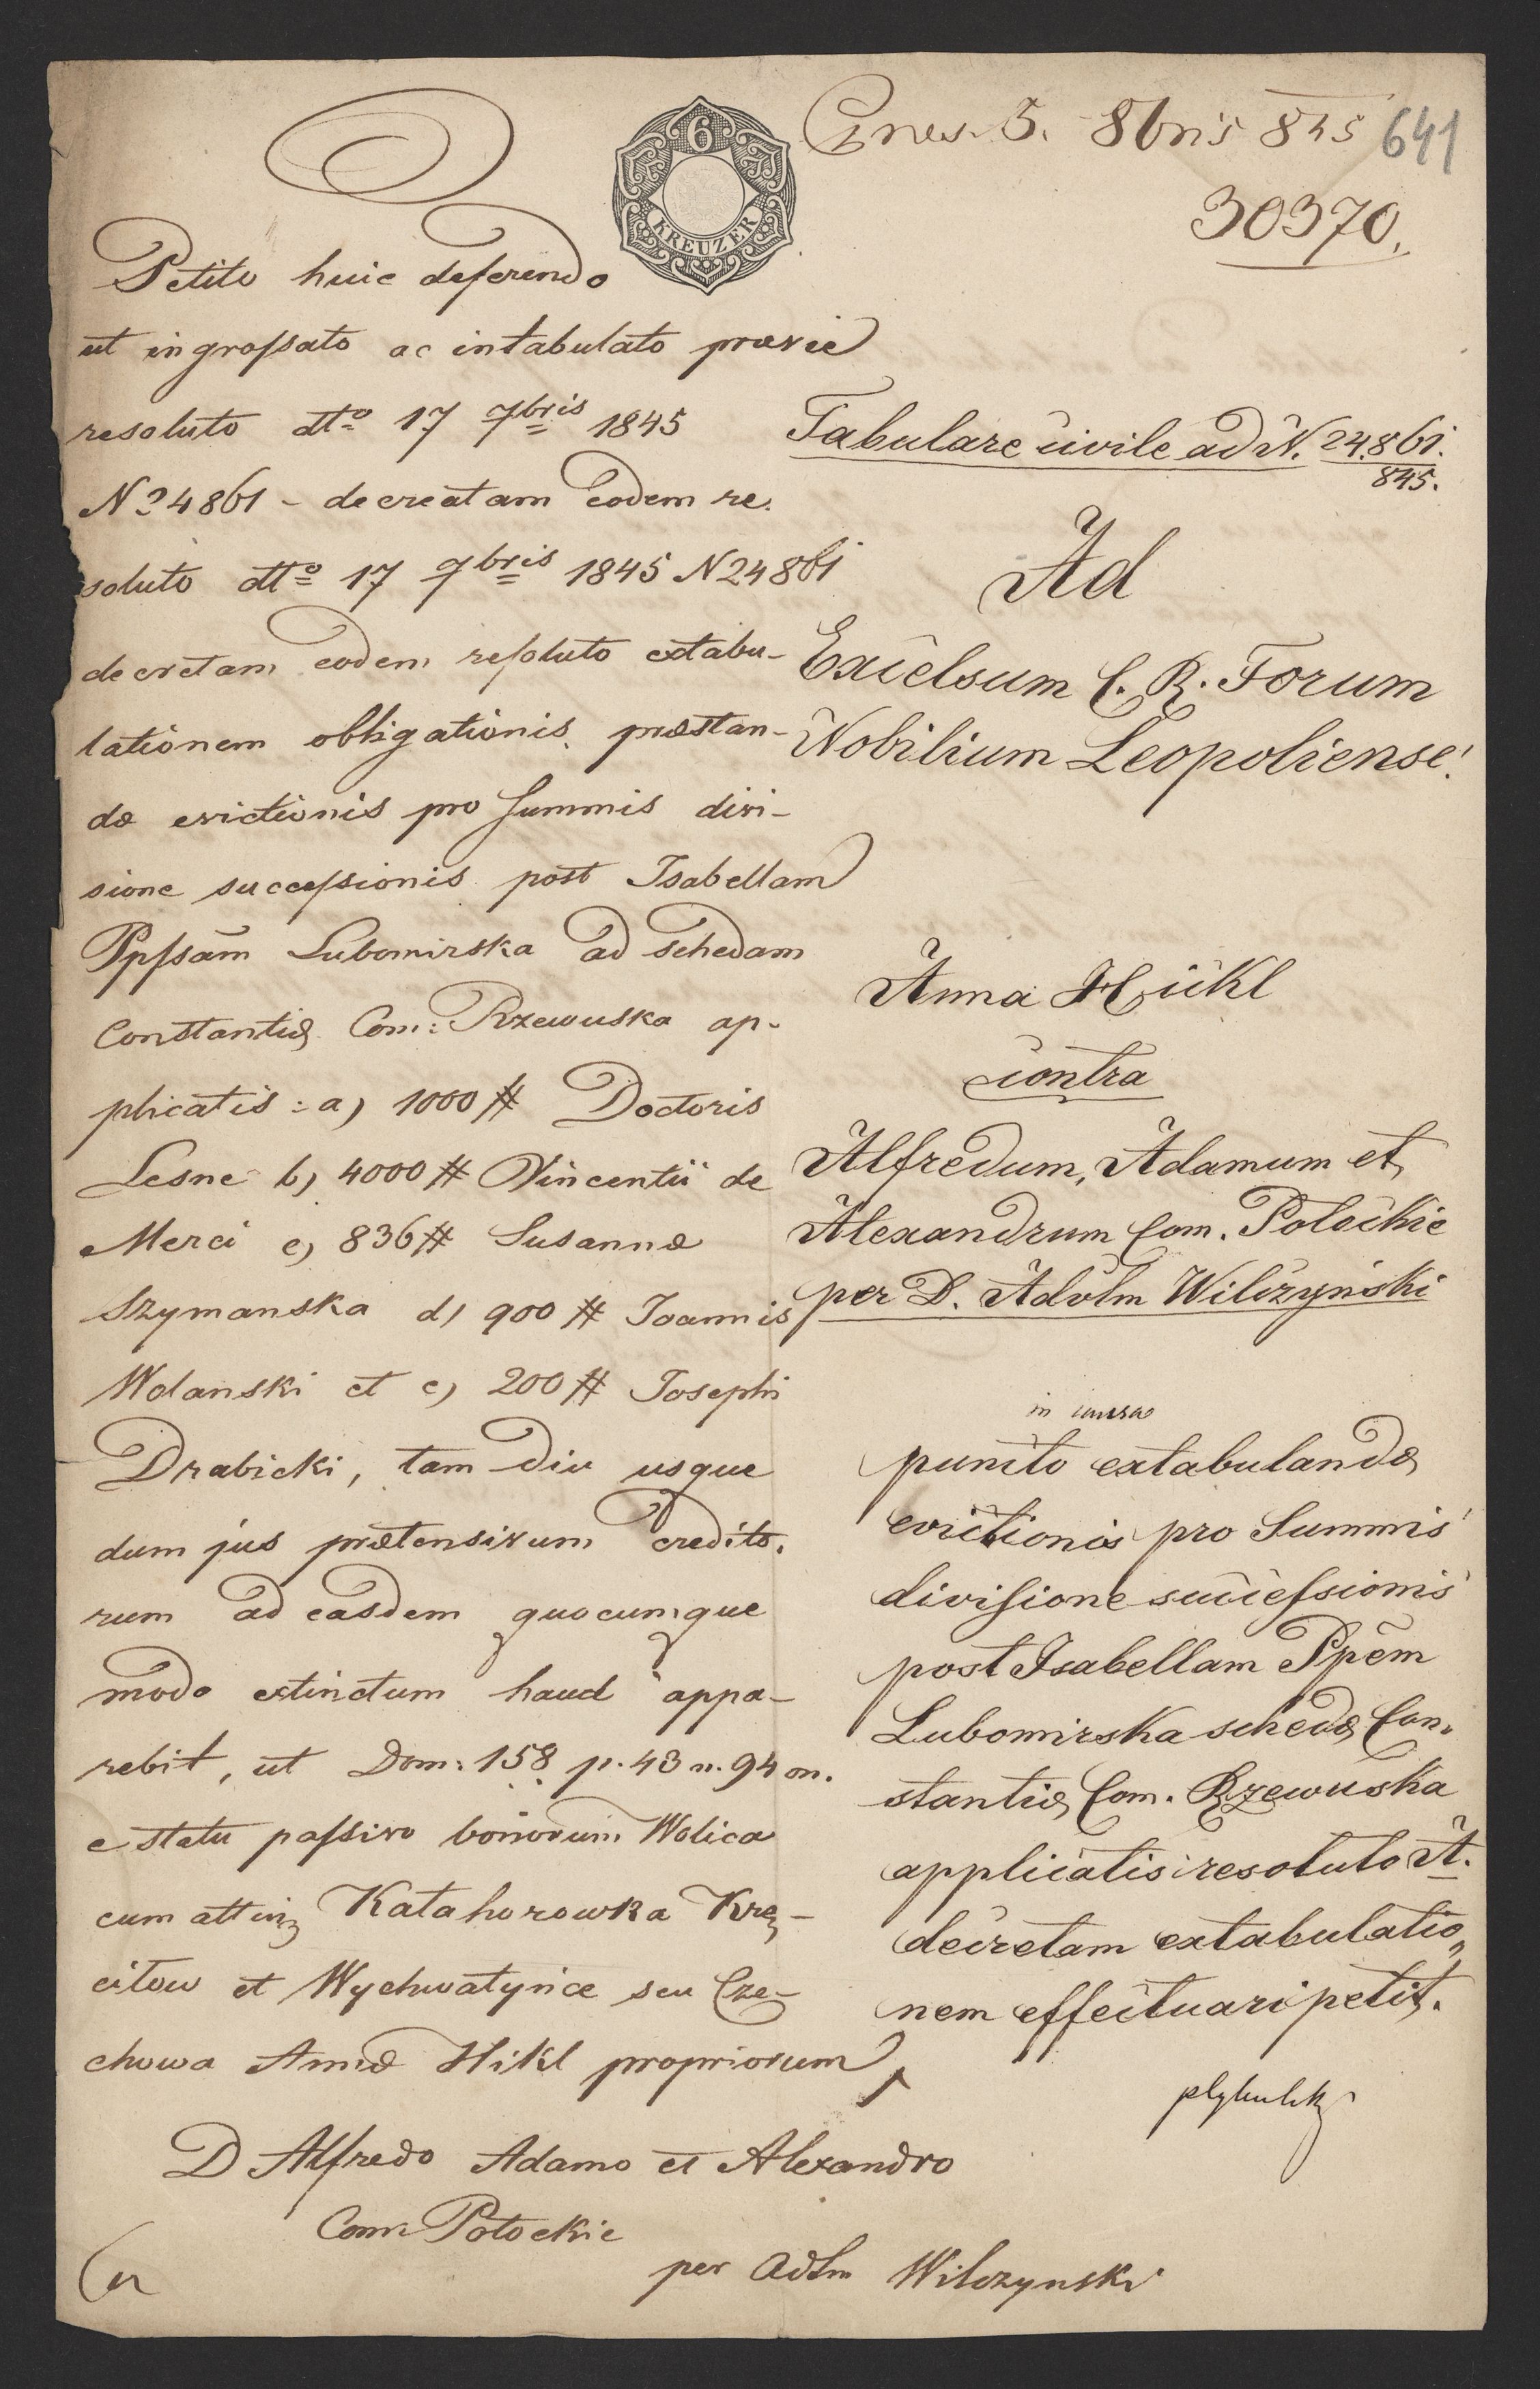 5. 8bris 845
641
30370.
6
KREUZER
Petito huic deferendo
ut ingrossato ac intabulato prævie
resoluto dtto 17 7bris 1845
N 24861 - decretam eodem re.
soluto dtto 17 7bris 1845 N 24861
decretam eodem resoluto extabu-
lationem obligationis præstan-
dæ evictionis pro summis divi-
sione successionis post Isabellam
Ppssam Lubomirska ad schedam
Constantiæ Com: Rzewuska ap-
plicatis : a) 1000 # Doctoris
Lesne b) 4000 # Vincentii de
Merci c) 836 # Susannæ
Szymanska d) 900 # Joannis
Wolanski et e) 200 # Josephi
Drabicki, tam diu usque
dum jus prætensivum credito.
rum ad easdem quocumque
modo extinctum haud appa-
rebit, ut Dom: 158 p. 43 n. 94 on.
e statu passivo bonorum Wolica
cum attin Katahorowka Kre-
citow et Wychwatynce seu Cze-
chowa Annæ Hikl propriorum
D Alfredo Adamo et Alexandro
Com: Potockie
per Adlm Wilczynski
Tabulare civile ad N. 24.861.
845.
Ad
Excelsum C. R. Forum
Nobilium Leopoliense!
Anna Hickl
contra
Alfredum, Adamum et
Alexandrum Com. Potockie
per D. Advtm Wilczyński
in causa
puncto extabulandæ
evictionis pro Summis
divisione successionis
post Isabellam Ppem
Lubomirska schedæ Con,
stantiæ Com. Rzewuska
applicatis resoluto A.
decretam extabulatio,
nem effectuari petit.